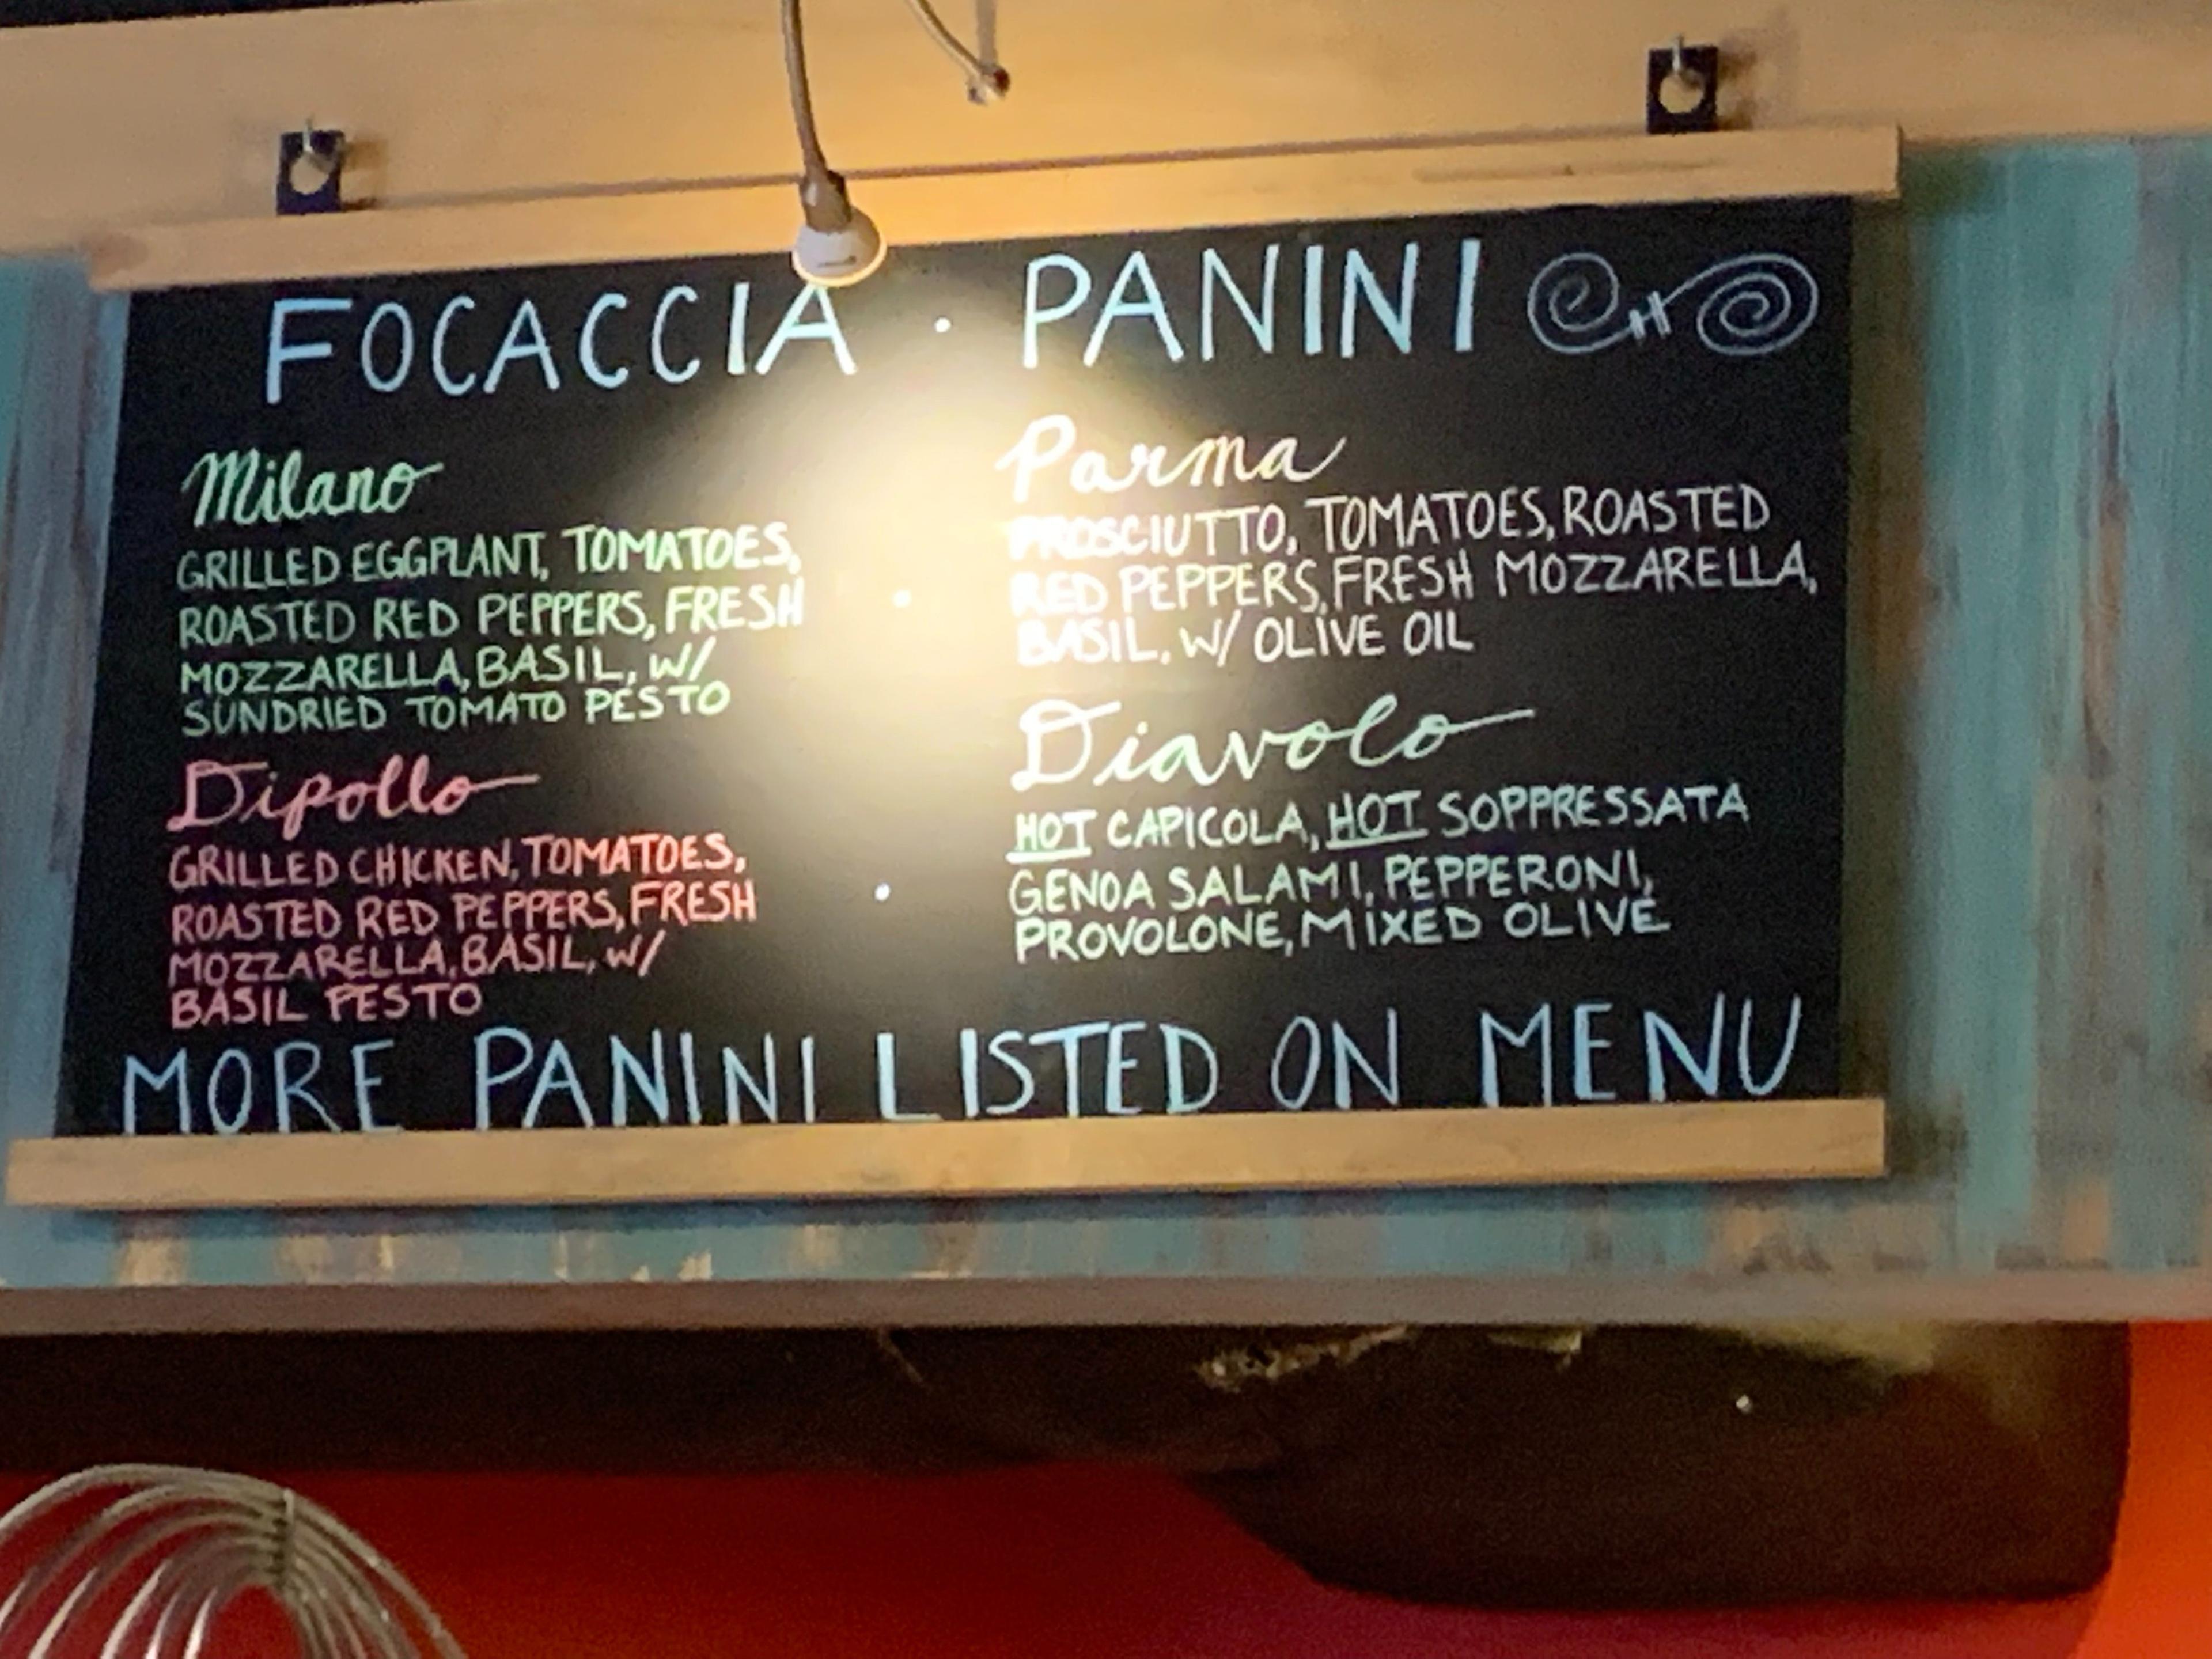 FOCACCIA · PANINI
Milano
GRILLED EGGPLANT, TOMATOES,
ROASTED RED PEPPERS, FRESH
MOZZARELLA, BASIL, W/
SUNDRIED TOMATO PESTO
Dipollo
GRILLED CHICKEN, TOMATOES,
ROASTED RED PEPPERS, FRESH
MOZZARELLA, BASIL, W/
BASIL PESTO
Parma
PROSCIUTTO, TOMATOES, ROASTED
RED PEPPERS, FRESH MOZZARELLA,
BASIL, W/ OLIVE OIL
Diavolo
HOT CAPICOLA, HOT SOPPRESSATA
GENOA SALAMI, PEPPERONI,
PROVOLONE, MIXED OLIVE
MORE PANINI LISTED ON MENU